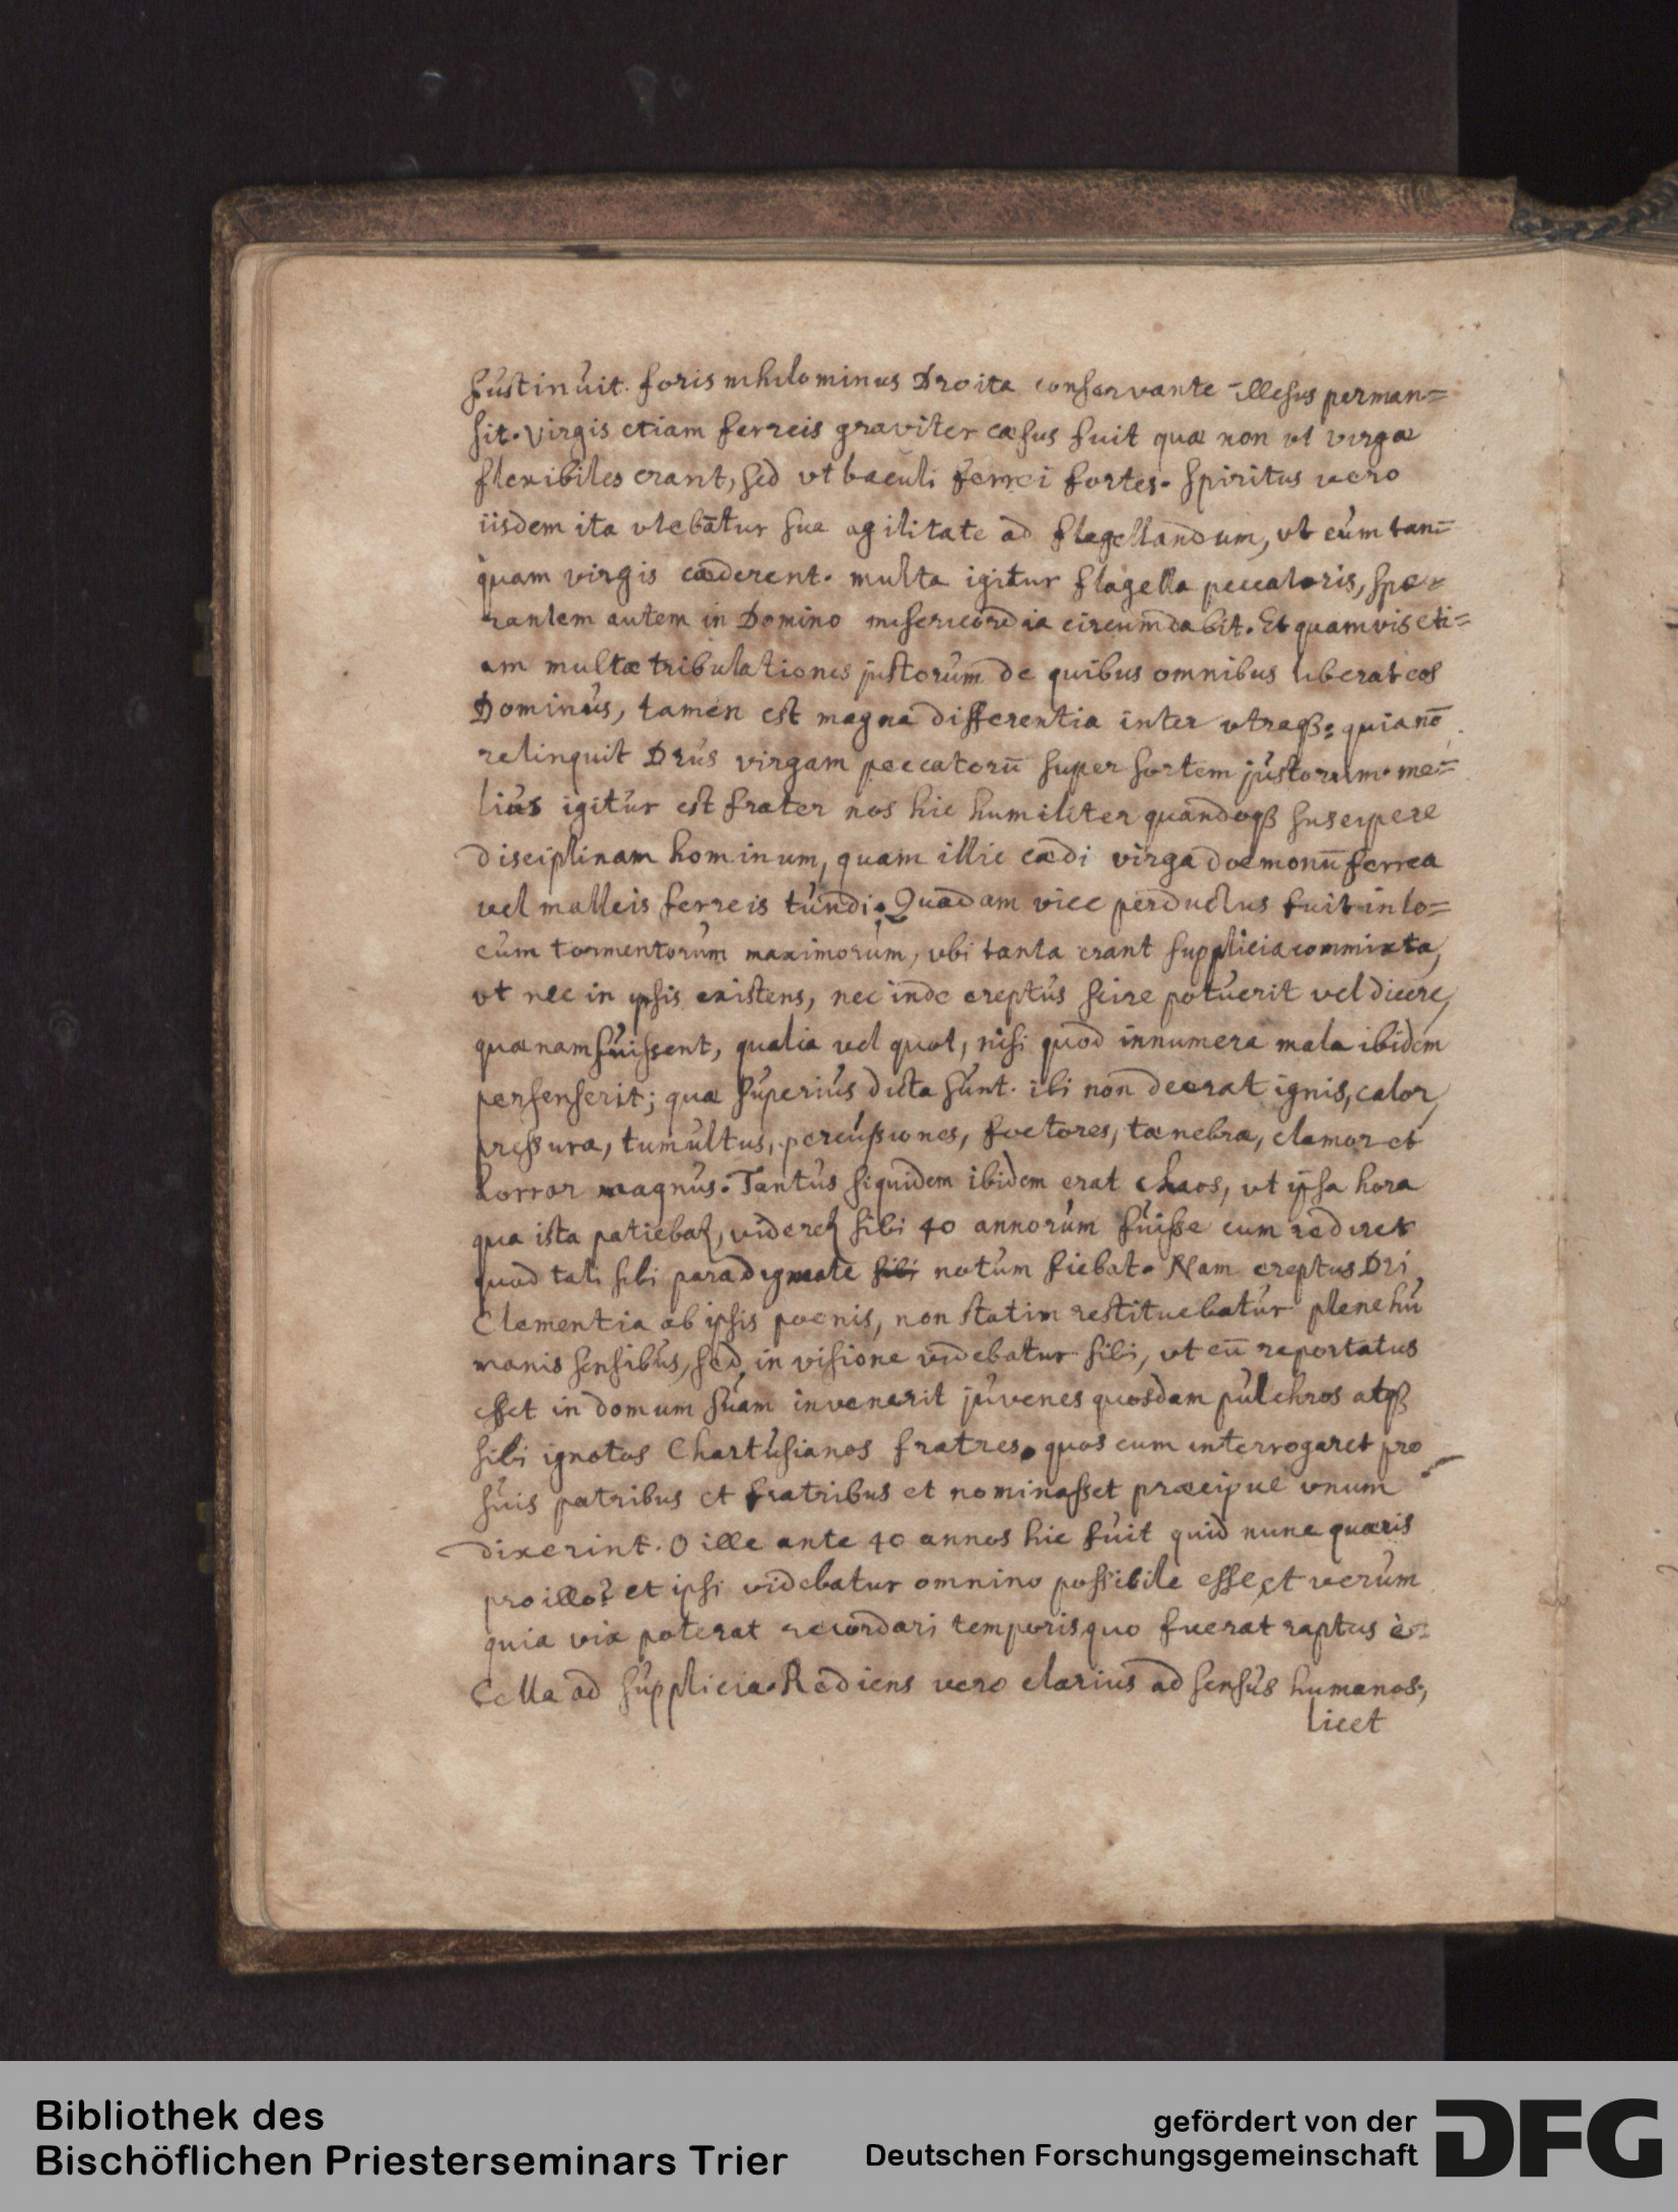 sustinuit. foris nihilominus Dno ita conservante illesus perman=
sit. Virgis etiam ferreis graviter cæsus fuit quæ non ut virgæ
flexibiles erant, sed vt baculi ferrei fortes. Spiritus vero
iisdem ita vtebãtur sua agilitate ad flagellandum, vt eum tan=
quam virgis cæderent. multa igitur flagella peccatoris, spe=
rantem autem in Domino misericordia circumdabit. Et quamvis eti=
am multæ tribulationes justorum de quibus omnibus liberat eos
Dominus, tamen est magna differentia inter vtraqß: quia nō
relinquit Dñus virgam peccatorū super sortem justorum. me=
lius igitur est frater nos hic humiliter quandoqß suscipere
disciplinam hominum, quam illic cædi virga dæmonū ferrea
vel malleis ferreis tundi. Quadam vice perductus fuit in lo=
cum tormentorum maximorum, vbi tanta erant supplicia commixta,
vt nec in ipsis existens, nec inde ereptus scire potuerit vel dicere,
quænam fuissent, qualia vel quot, nisi quod innumera mala ibidem
persenserit; quæ superius dicta sunt. ibi non deerat ignis, calor,
pressura, tumultus, percußiones, foetores, tænebræ, clamor et
horror magnus. Tantus siquidem ibidem erat chaos, vt ipsa hora
qua ista patiebat, videret sibi 40 annorum fuisse cum rediret
quod tali sibi paradigmate sibi notum fiebat. Nam ereptus Dñi
Clementia ab ipsis poenis, non statim restituebatur plene hu
manis sensibus, sed in visione videbatur sibi, vt cū reportatus
esset in domum suam invenerit juvenes quosdam pulchros atqß
sibi ignotos Chartusianos fratres. quos cum interrogaret pro
suis patribus et fratribus et nominasset præcipue vnum
dixerint. O ille ante 40 annos hic fuit quid nunc quæris
pro illo? et ipsi videbatur omnino possibile esse et verum
quia vix poterat recordari temporis quo fuerat raptus è
Cella ad supplicia. Rediens vero clarius ad sensus humanos,
licet
Bibliothek des
Bischöflichen Priesterseminars Trier
gefördert von der
Deutschen Forschungsgemeinschaft
DFG